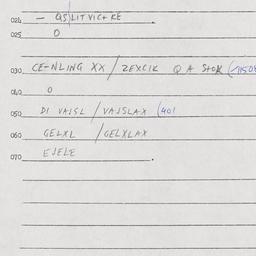 024 — QS/LITVICHKE
025 0
030 CE-NLING XX / ZEXCIK Q A STOK (-11508
040 0
050 DI VAJSL / VAJSLAX (401
060 GELXL / GELXLAX
070 EJELE